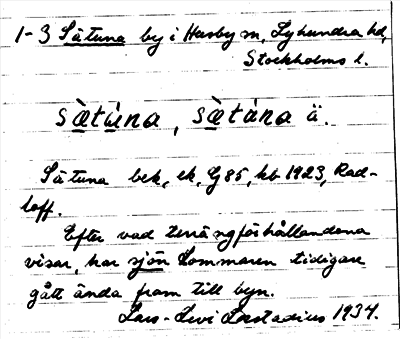 1-3 Sätuna by i Husby sn, Lyhundra hd,
Stockholms l.
sæ̀tùna, sæ̀tána ä.
Sätuna bek, ek, G85, kb 1923, Rad-
loff.
Efter vad terrängförhållandena
visar, har sjön Lommaren tidigare
gått ända fram till byn.
Lars-Levi Læstadius 1934.